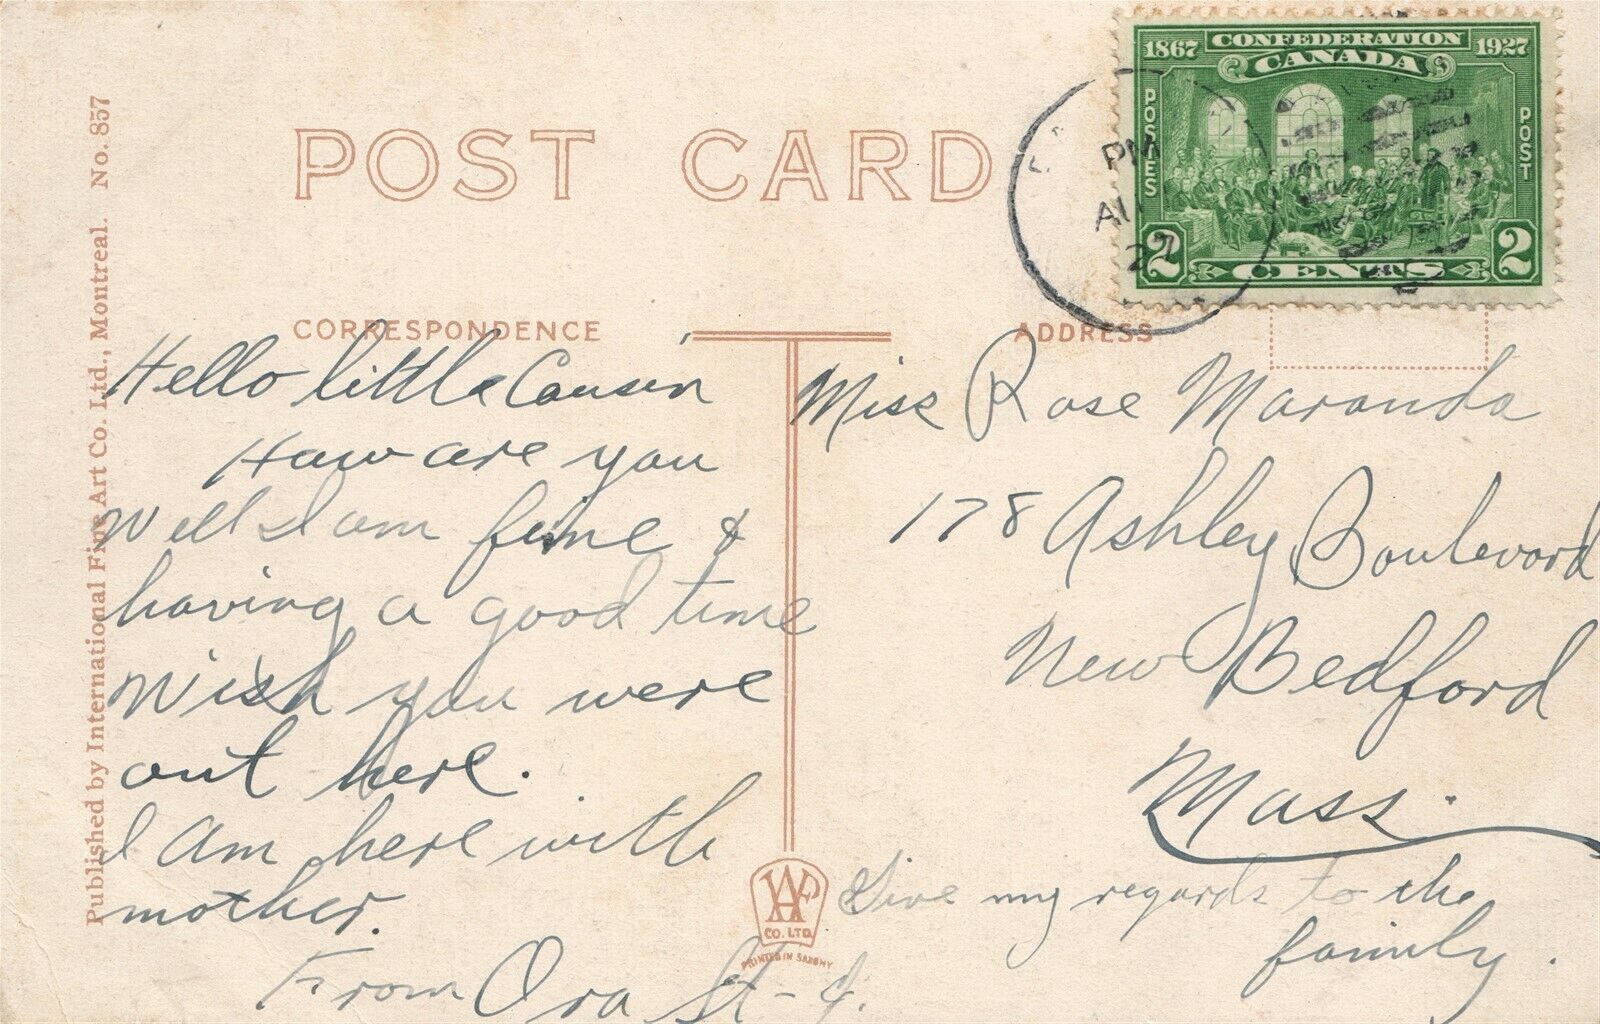 1867 CONFEDERATION 1927
CANADA
POSTES
POST
2 CENTS 2
PM
AU
27
POST CARD
Published by International Fine Art Co. Ltd., Montreal. No. 857
CORRESPONDENCE
ADDRESS
Hello little Cousin
How are you
Well I am fine &
having a good time
Wish you were
out here.
I am here with
mother.
From Ora St-
Miss Rose Maranda
178 Ashley Boulevard
New Bedford
Mass.
Give my regards to the
family.
CO. LTD.
PRINTED IN SAXONY